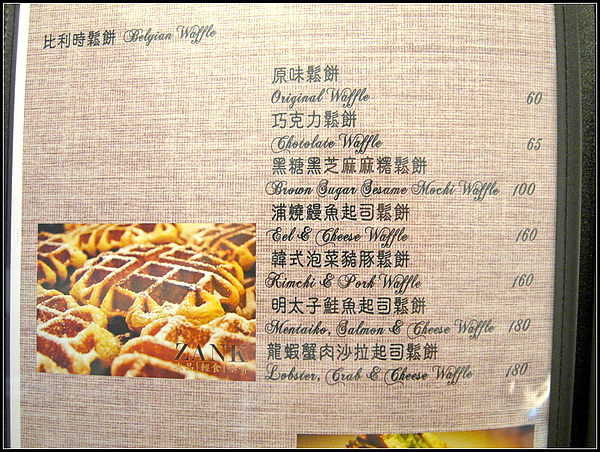 比利時鬆餅 Belgian Waffle
原味鬆餅
Original Waffle 60
巧克力鬆餅
Chotolate Waffle 65
黑糖黑芝麻麻糬鬆餅
Brown Sugar Sesame Mochi Waffle 100
浦燒鰻魚起司鬆餅
Eel & Cheese Waffle 160
韓式泡菜豬豚鬆餅
Kimchi & Pork Waffle 160
明太子鮭魚起司鬆餅
Mentaiko, Salmon & Cheese Waffle 180
龍蝦蟹肉沙拉起司鬆餅
Lobster, Crab & Cheese Waffle 180
ZANK
品|輕食|咖啡